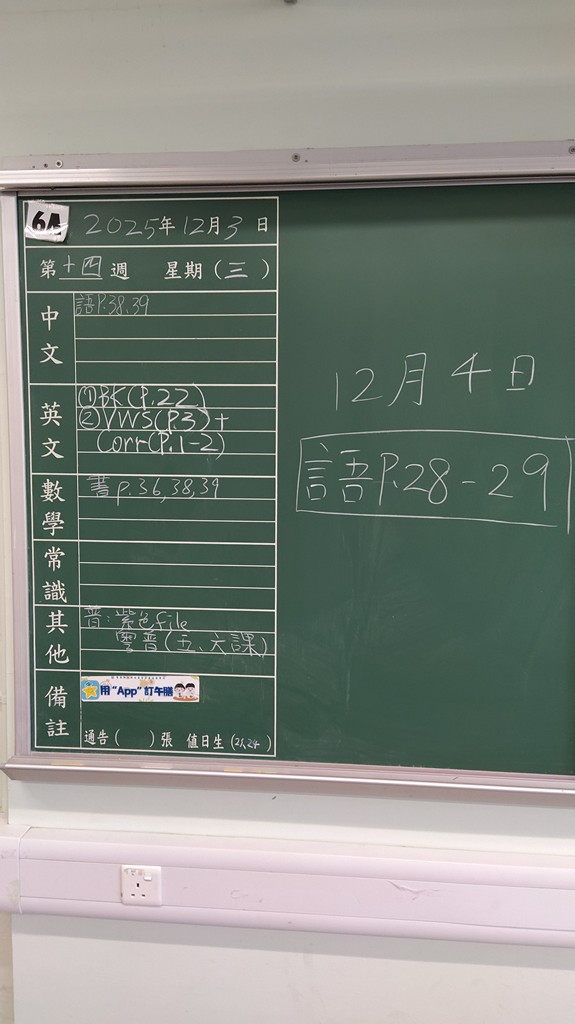 6A 2025年12月3日
第十四週 星期(三)
中文
語P.38,39
英文
①BK(P.22)
②VWS(P.3)+
Corr(P.1-2)
數學
書p.36,38,39
常識
其他
普:紫色file
粵普(五、六課)
備註
用"App"訂午膳
通告( )張 值日生(23,24)
12月4日
語P.28-29